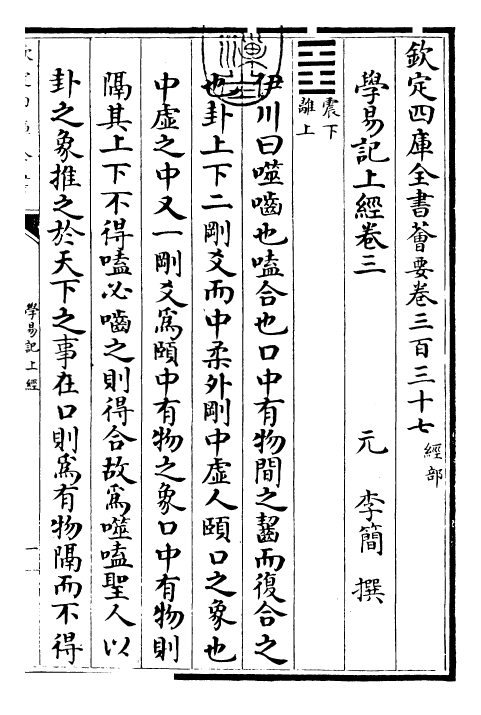 欽定四庫全書薈要卷三百三十七 經部
學易記上經卷三
元 李簡 撰
震下
離上
伊川曰噬嚙也嗑合也口中有物間之齧而復合之
也卦上下二剛爻而中柔外剛中虛人頤口之象也
中虛之中又一剛爻爲頤中有物之象口中有物則
隔其上下不得嗑必嚙之則得合故爲噬嗑聖人以
卦之象推之於天下之事在口則爲有物隔而不得
學易記上經
一